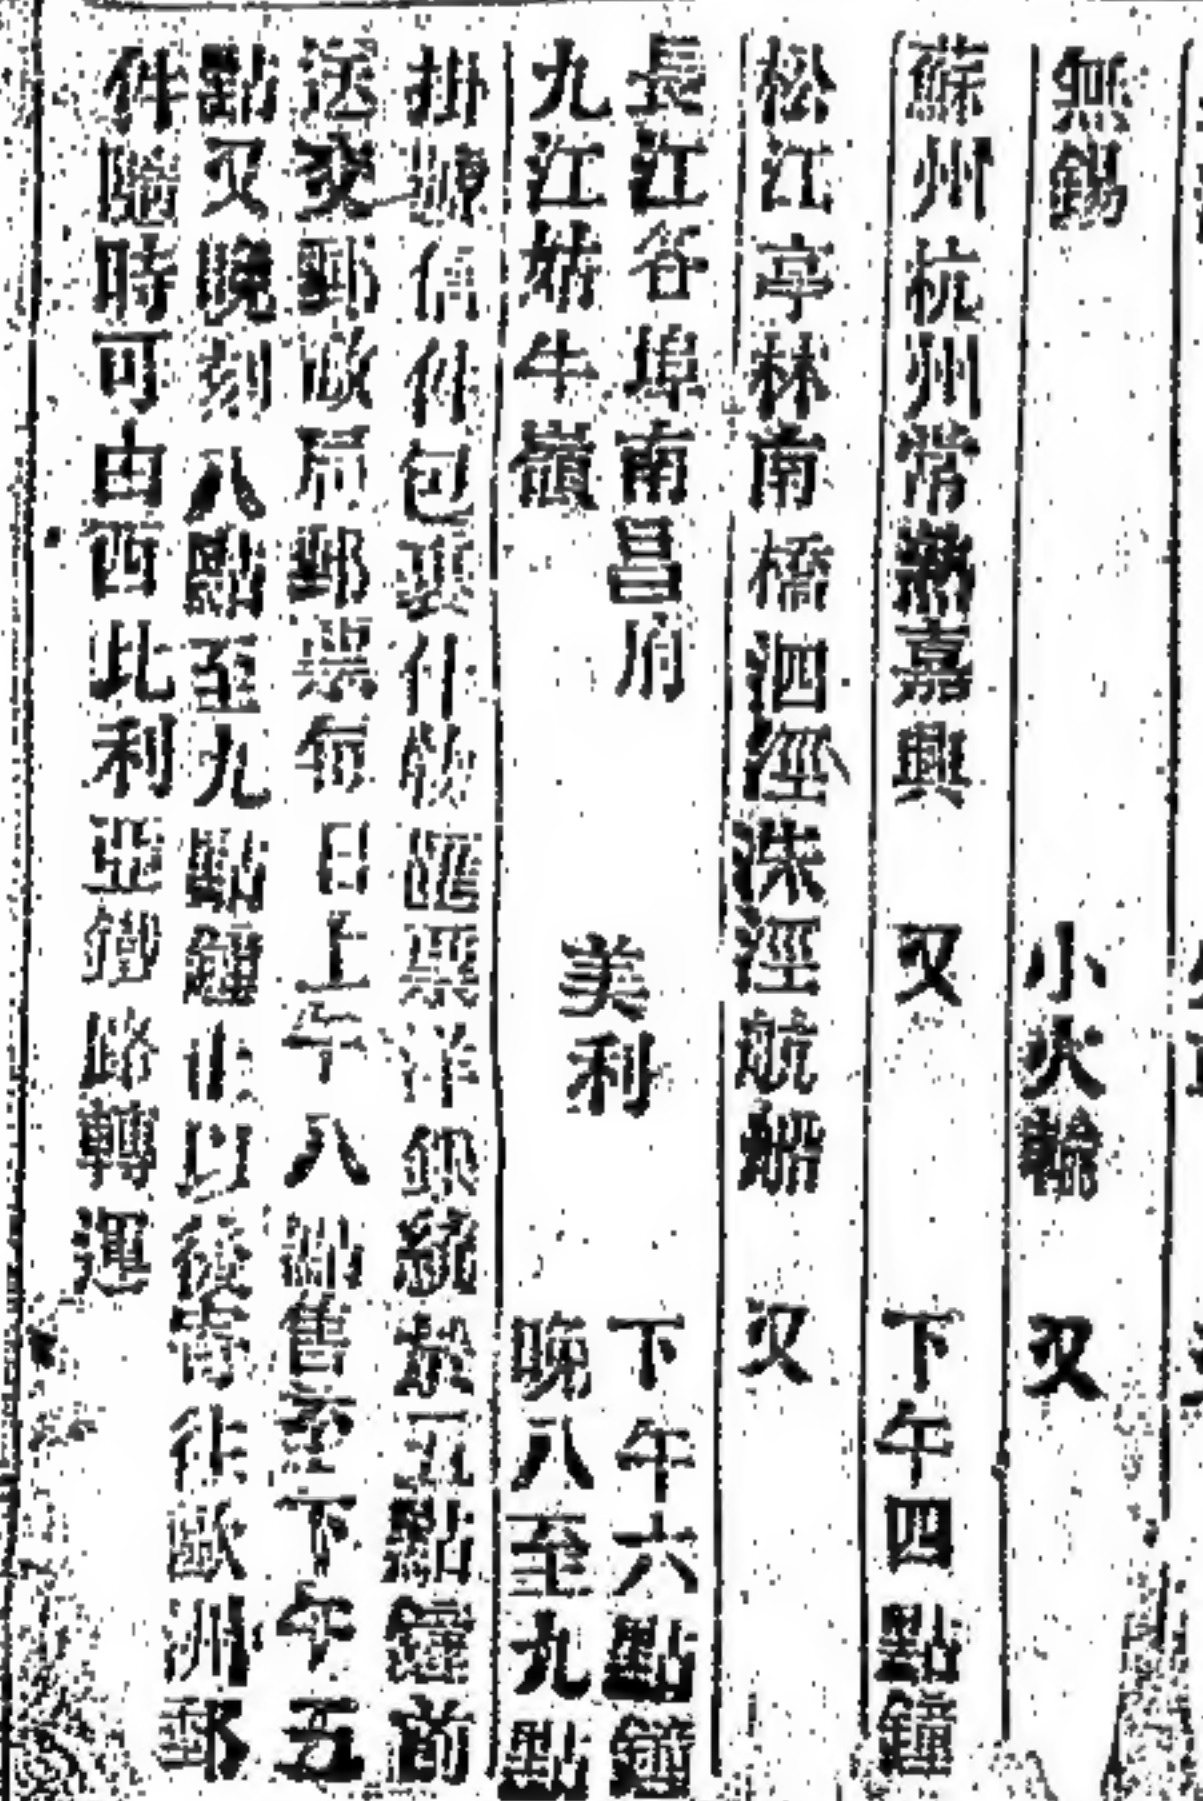 無錫 小火輪 又
蘇州杭州常熟嘉興 又 下午四點鐘
松江亭林南橋泗涇洙涇航船 又
長江各埠南昌府 美利 下午六點鐘
九江姑牛嶺 晚八至九點
掛號信件包裹什物匯票洋銀統於五點鐘前
送交郵政局郵票每日上午八點售至下午五
點又晚刻八點至九點鐘止以後寄往歐洲郵
件隨時可由西比利亞鐵路轉運